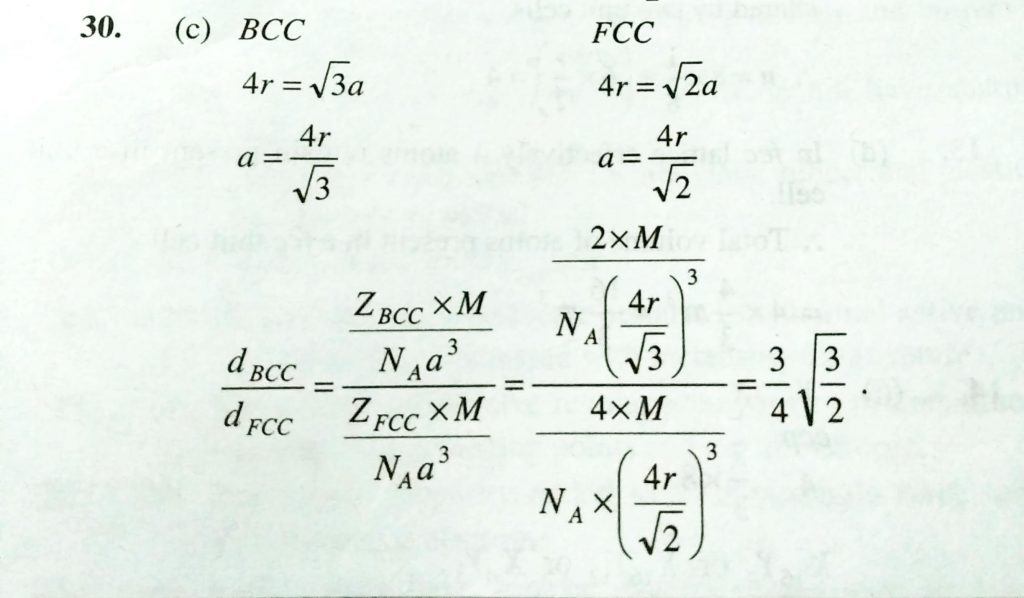 30. (c) BCC FCC
4r = √3a 4r = √2a
a = 4r/√3 a = 4r/√2
d_BCC/d_FCC = (Z_BCC × M / N_A a³)/(Z_FCC × M / N_A a³) = (2×M / N_A (4r/√3)³)/(4×M / N_A × (4r/√2)³) = 3/4 √(3/2) .